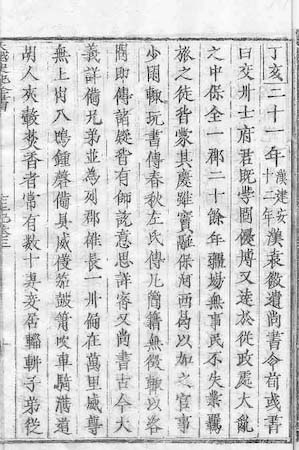 丁亥二十一年漢建安十二年漢袁徽遺尚書令荀彧書
曰交州士府君既學問優博又達於從政處大亂
之中保全一郡二十餘年疆場無事民不失業羈
旅之徒皆蒙其慶雖竇融保河西曷以加之官事
少閑輒玩書傳春秋左氏傳凡簡籍無徵輒以咨
問即傳諸疑皆有師說意思詳密又尚書古今大
義詳備兄弟並為列郡雄長一州偏在萬里威尊
無上出入鳴鐘磬備具威儀笳鼓簫吹車騎滿道
胡人夾轂焚香者常有數十妻妾居輜軿子弟從